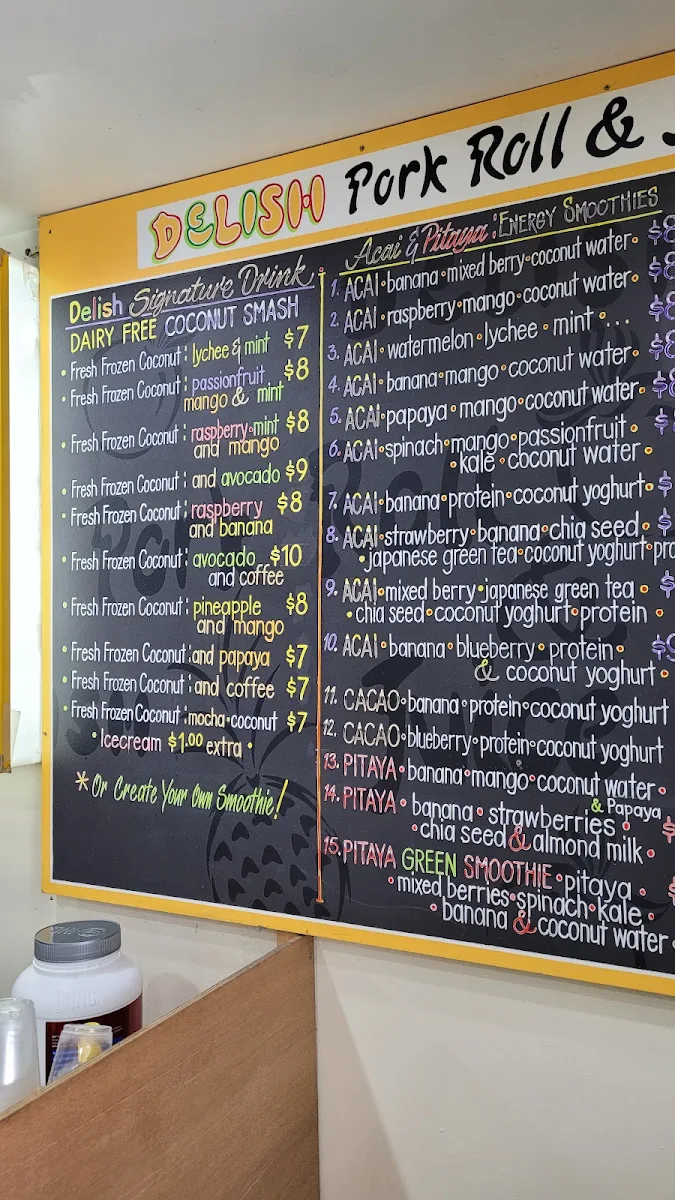 DELISH Pork Roll &
Delish Signature Drink
DAIRY FREE COCONUT SMASH
• Fresh Frozen Coconut: lychee & mint $7
• Fresh Frozen Coconut: passionfruit $8
mango & mint
• Fresh Frozen Coconut: raspberry•mint $8
and mango
• Fresh Frozen Coconut: and avocado $9
• Fresh Frozen Coconut: raspberry $8
and banana
• Fresh Frozen Coconut: avocado $10
and coffee
• Fresh Frozen Coconut: pineapple $8
and mango
• Fresh Frozen Coconut: and papaya $7
• Fresh Frozen Coconut: and coffee $7
• Fresh Frozen Coconut: mocha•coconut $7
• Icecream $1.00 extra •
* Or Create Your Own Smoothie!
Acai & Pitaya: ENERGY SMOOTHIES
1. ACAI•banana•mixed berry•coconut water• $8
2. ACAI•raspberry•mango•coconut water• $8
3. ACAI•watermelon•lychee•mint•... $8
4. ACAI•banana•mango•coconut water• $8
5. ACAI•papaya•mango•coconut water• $8
6. ACAI•spinach•mango•passionfruit• $
•kale•coconut water•
7. ACAI•banana•protein•coconut yoghurt• $
8. ACAI•strawberry•banana•chia seed• $
•japanese green tea•coconut yoghurt•pro
9. ACAI•mixed berry•japanese green tea• $
•chia seed•coconut yoghurt•protein •
10. ACAI•banana•blueberry•protein• $9
& coconut yoghurt•
11. CACAO•banana•protein•coconut yoghurt
12. CACAO•blueberry•protein•coconut yoghurt
13. PITAYA•banana•mango•coconut water•
& Papaya
14. PITAYA•banana•strawberries• $
•chia seed & almond milk•
15. PITAYA GREEN SMOOTHIE•pitaya• $
•mixed berries•spinach•kale•
•banana & coconut water•